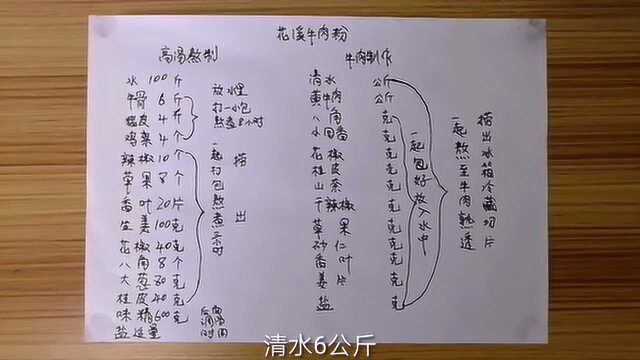 花溪牛肉粉
高汤熬制
水 100 斤
牛骨 6 斤
猪皮 4 斤
鸡架 4 个
辣椒 10 个
草果 8 个
香叶 20 片
生姜 100 克
花椒 40 克
八角 8 个
大葱 30 克
桂皮 40 克
味精 600 克
盐 适量
放水里
打一小包
熬煮8小时
一起打包熬煮
捞出
牛肉制作
清水 公斤
黄牛肉 公斤
八角 克
小茴香 克
花椒 克
桂皮 克
山柰 克
干辣椒 克
草果 克
砂仁 克
香叶 克
姜片 克
盐 克
一起包好放入水中
一起熬至牛肉熟透
捞出冰箱冷藏切片
清水6公斤